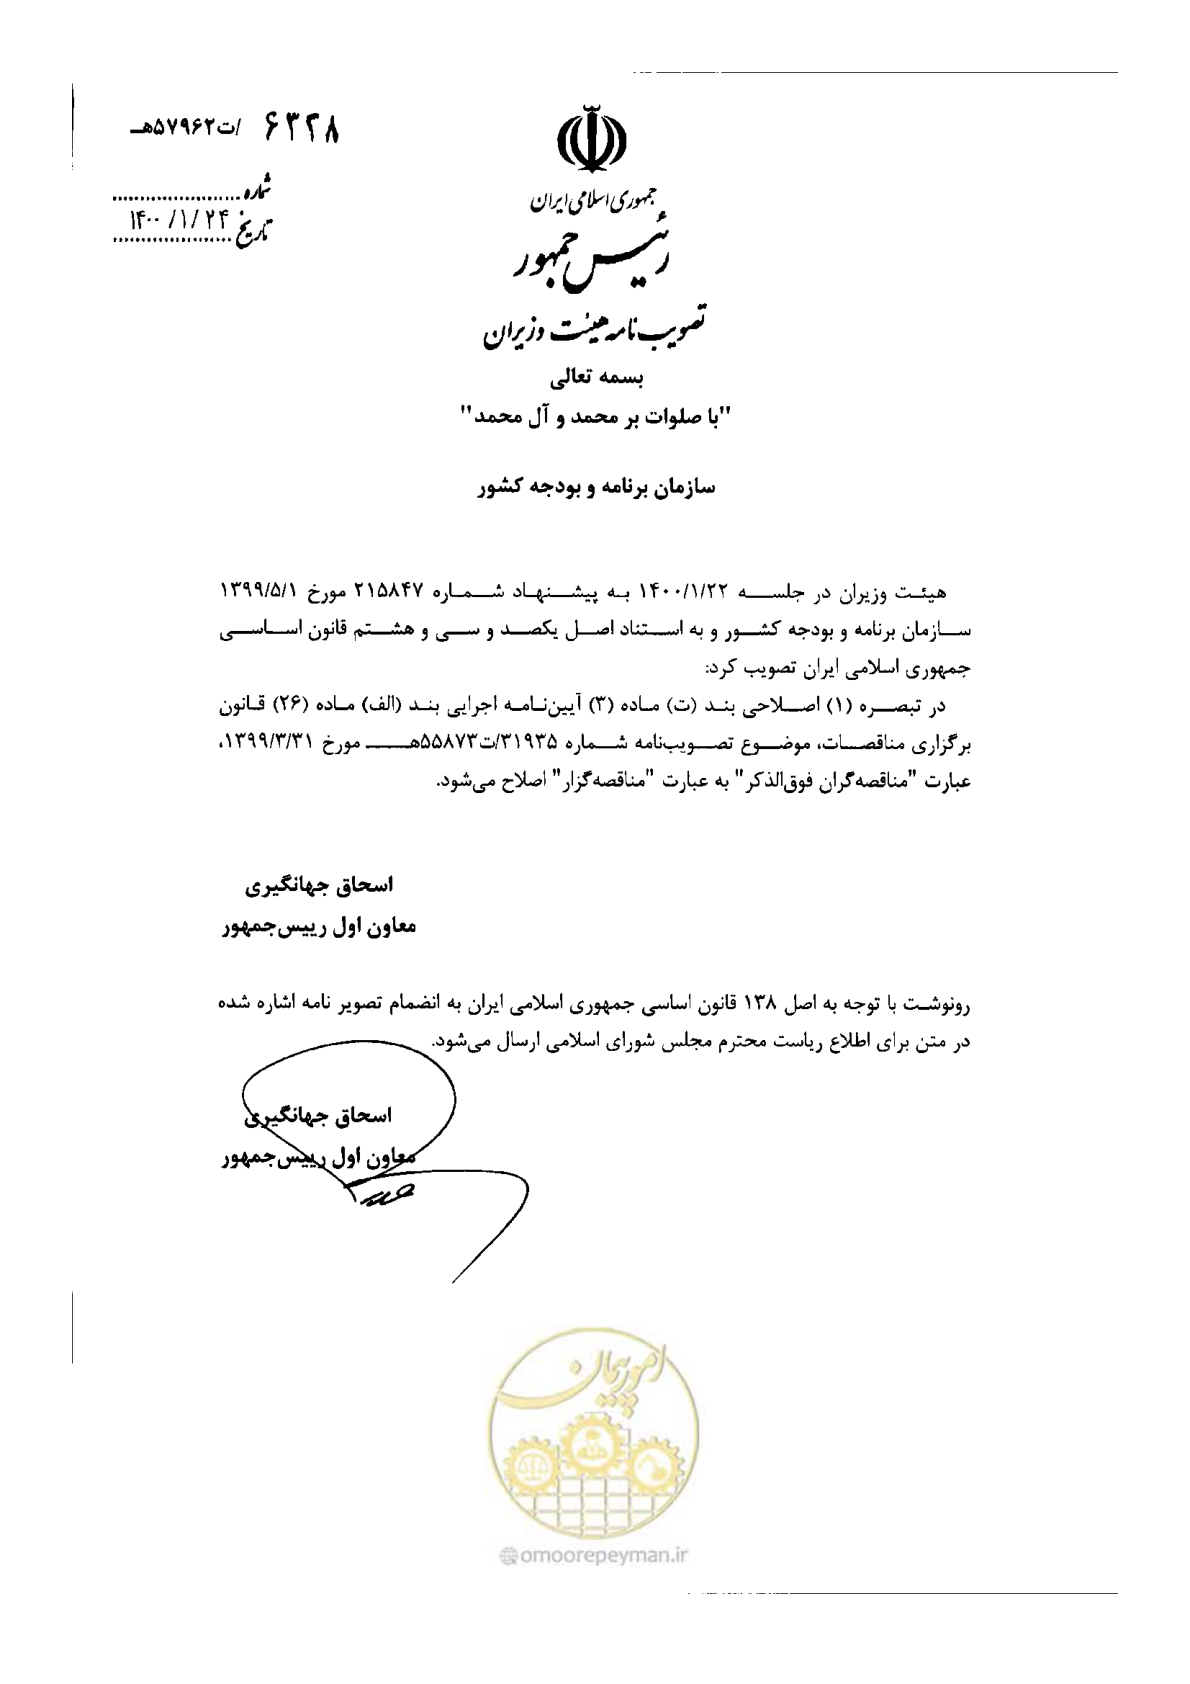 ۶۳۲۸ /ت۵۷۹۶۲هـ
شماره
تاریخ ۱۴۰۰/۱/۲۴
جمهوری اسلامی ایران
رئیس جمهور
تصویب نامه هیئت وزیران
بسمه تعالی
"با صلوات بر محمد و آل محمد"
سازمان برنامه و بودجه کشور
هیئت وزیران در جلسه ۱۴۰۰/۱/۲۲ به پیشنهاد شماره ۲۱۵۸۴۷ مورخ ۱۳۹۹/۵/۱
سازمان برنامه و بودجه کشور و به استناد اصل یکصد و سی و هشتم قانون اساسی
جمهوری اسلامی ایران تصویب کرد:
در تبصره (۱) اصلاحی بند (ت) ماده (۳) آیین‌نامه اجرایی بند (الف) ماده (۲۶) قانون
برگزاری مناقصات، موضوع تصویب‌نامه شماره ۳۱۹۳۵/ت۵۵۸۷۳هـ مورخ ۱۳۹۹/۳/۳۱،
عبارت "مناقصه‌گران فوق‌الذکر" به عبارت "مناقصه‌گزار" اصلاح می‌شود.
اسحاق جهانگیری
معاون اول رییس‌جمهور
رونوشت با توجه به اصل ۱۳۸ قانون اساسی جمهوری اسلامی ایران به انضمام تصویر نامه اشاره شده
در متن برای اطلاع ریاست محترم مجلس شورای اسلامی ارسال می‌شود.
اسحاق جهانگیری
معاون اول رییس‌جمهور
امور پیمان
@omoorepeyman.ir